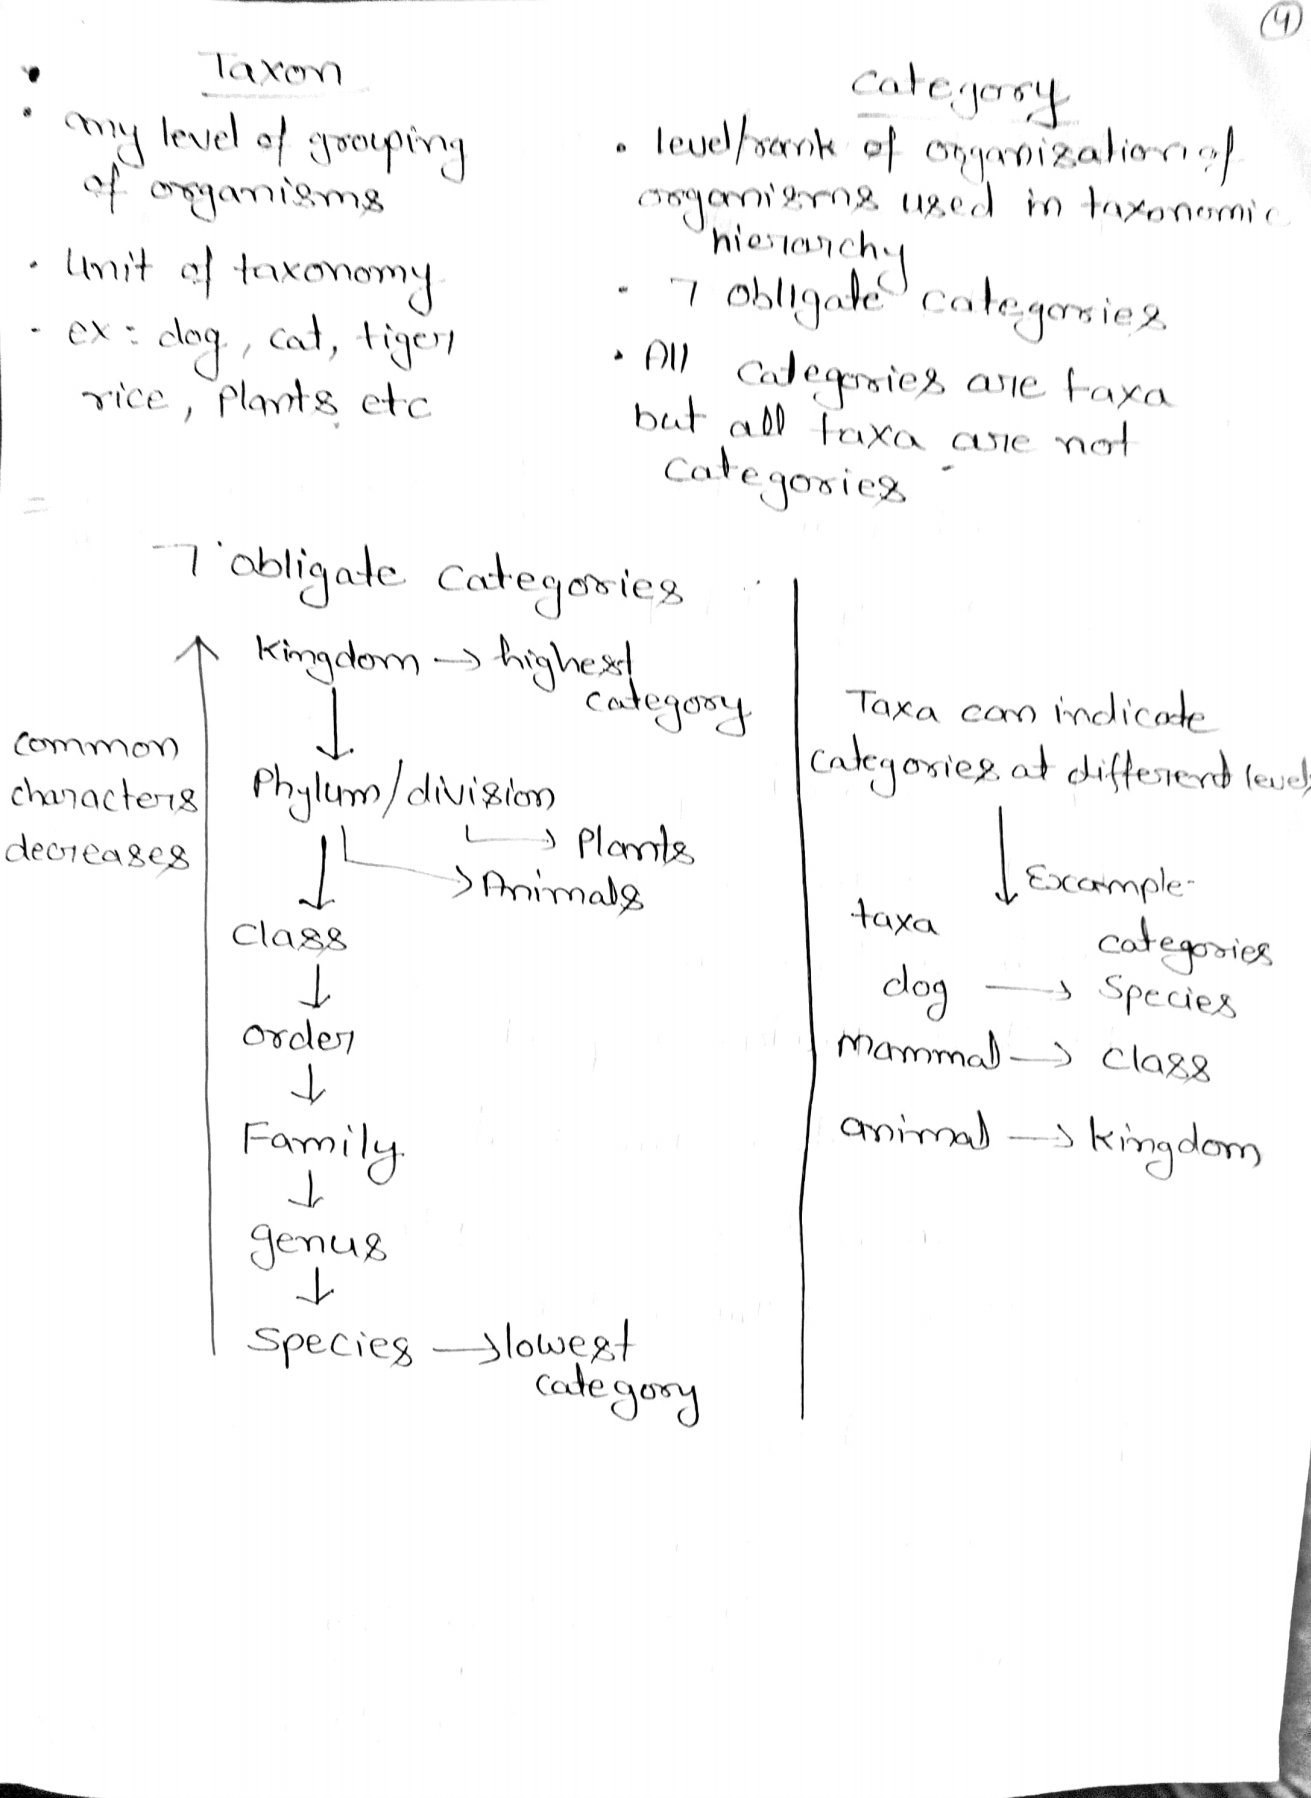 4
Taxon
• any level of grouping
of organisms
• Unit of taxonomy
• ex: dog, cat, tiger
rice, plants etc
Category
• level/rank of organization of
organisms used in taxonomic
hierarchy
• 7 obligate categories
• All categories are taxa
but all taxa are not
categories
7 obligate categories
Kingdom → highest
category
↓
Phylum/division
→ Plants
→ Animals
↓
Class
↓
order
↓
Family
↓
genus
↓
Species → lowest
category
common
characters
decreases
Taxa can indicate
categories at different levels
↓ Example-
taxa categories
dog → Species
mammal → class
animal → kingdom